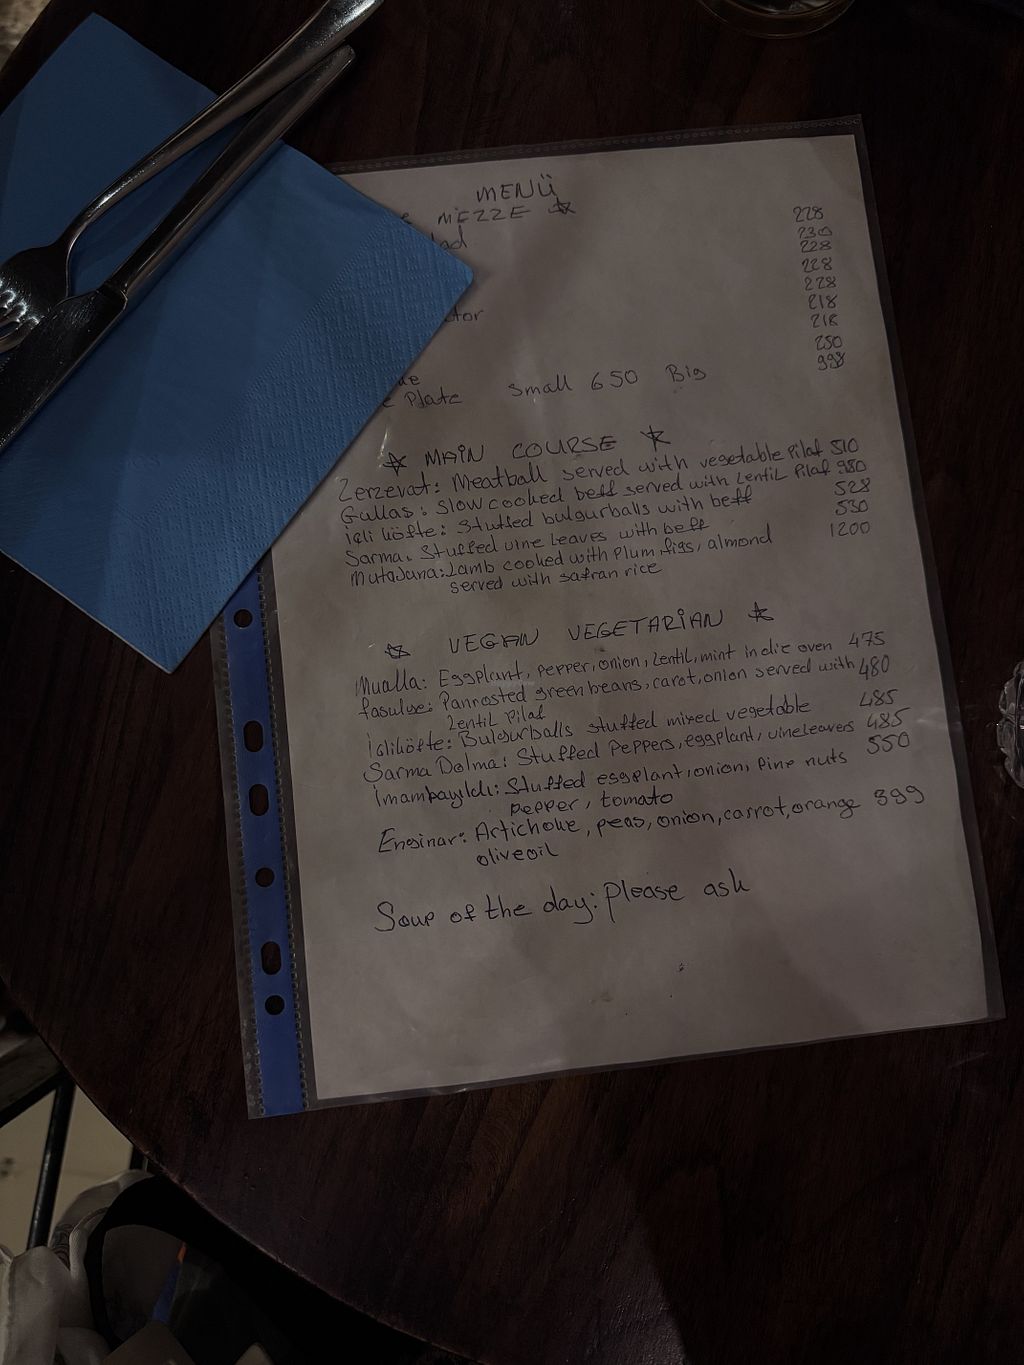 MENÜ
MEZZE
228
230
228
228
228
218
218
250
Plate small 650 Big 998
MAIN COURSE
Zerzevat: Meatball served with vegetable Pilaf 510
Gullas: Slow cooked beff served with Lentil Pilaf 980
içli köfte: Stuffed bulgurballs with beff 528
Sarma. Stuffed vine Leaves with beff 530
Mutajana: Lamb cooked with Plum, figs, almond 1200
served with safran rice
VEGAN VEGETARIAN
Mualla: Eggplant, pepper, onion, Lentil, mint in die oven 475
fasulye: Panrosted green beans, carot, onion served with 480
Lentil Pilaf
içliköfte: Bulgurballs stuffed mixed vegetable 485
Sarma Dolma: Stuffed Peppers, eggplant, vineleavers 485
İmambayıldı: Stuffed eggplant, onion, Pine nuts 550
pepper, tomato
Enginar: Artichoke, peas, onion, carrot, orange 399
oliveoil
Soup of the day: Please ask